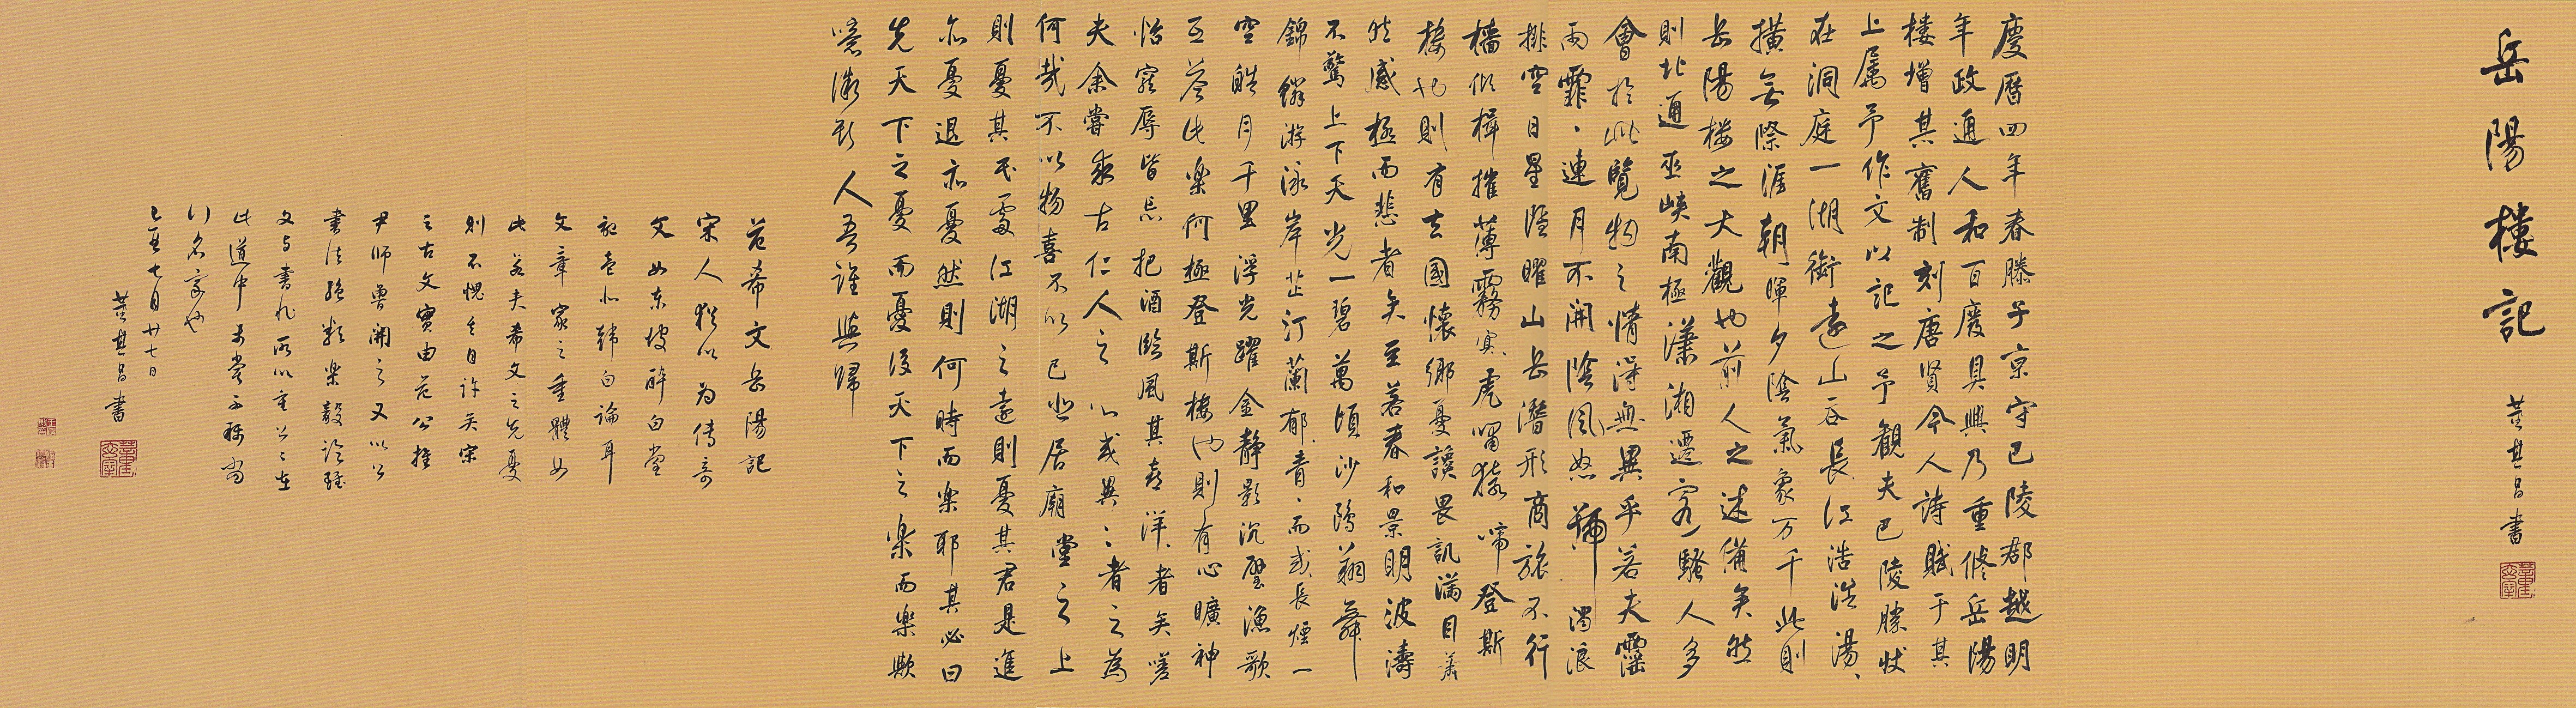 岳陽樓記
董其昌書
慶曆四年春滕子京守巴陵郡越明
年政通人和百廢具興乃重修岳陽
樓增其舊制刻唐賢今人詩賦于其
上屬予作文以記之予觀夫巴陵勝狀
在洞庭一湖銜遠山吞長江浩浩湯、
橫無際涯朝暉夕陰氣象万千此則
岳陽樓之大觀也前人之述備矣然
則北通巫峽南極瀟湘遷客騷人多
會於此覽物之情得無異乎若夫霪
雨霏、連月不開陰風怒號濁浪
排空日星隱曜山岳潛形商旅不行
檣傾楫摧薄霧冥、虎嘯猿啼登斯
樓也則有去國懷鄉憂讒畏譏滿目蕭
然感極而悲者矣至若春和景明波濤
不驚上下天光一碧萬頃沙鷗翔舞
錦鱗游泳岸芷汀蘭郁、青、而或長煙一
空皓月千里浮光躍金靜影沉璧漁歌
互答此樂何極登斯樓也則有心曠神
怡寵辱皆忘把酒臨風其喜洋、者矣嗟
夫余嘗求古仁人之心或異二者之為
何哉不以物喜不以己悲居廟堂之上
則憂其民處江湖之遠則憂其君是進
亦憂退亦憂然則何時而樂耶其必曰
先天下之憂而憂後天下之樂而樂歟
噫微斯人吾誰與歸
范希文岳陽記
宋人猶以為傳奇
文如東坡醉白堂
記是韓白論耳
文章家之重體如
此若夫希文之先憂
則不愧其自許矣宋
之古文實由范公推
尹師魯開之又以公
書法絕類樂毅論經
文与書非所以重公、在
此道中未嘗不稱當
行名家也
乙亥七月廿七日
董其昌書